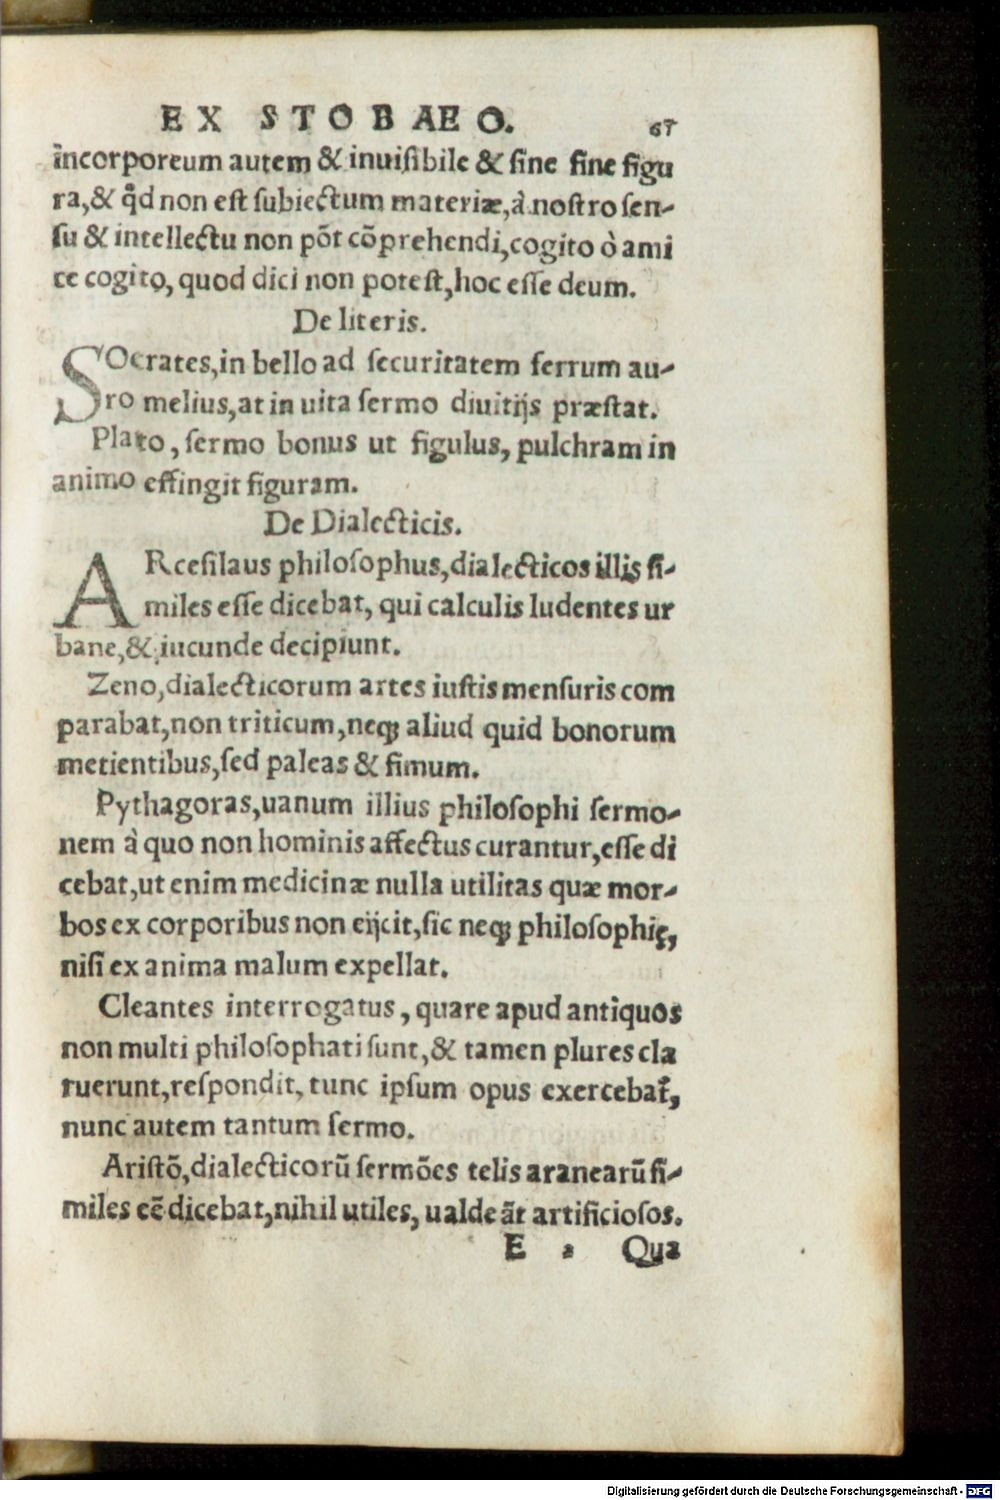 EX STOBAEO. 67
incorporeum autem & inuisibile & sine fine figu
ra,& q̊d non est subiectum materiæ, à nostro sen-
su & intellectu non põt cõprehendi, cogito ò ami
ce cogito, quod dici non potest, hoc esse deum.
De literis.
SOcrates, in bello ad securitatem ferrum au-
ro melius, at in uita sermo diuitijs præstat.
Plato, sermo bonus ut figulus, pulchram in
animo effingit figuram.
De Dialecticis.
ARcesilaus philosophus, dialecticos illis si-
miles esse dicebat, qui calculis ludentes ur
bane, & iucunde decipiunt.
Zeno, dialecticorum artes iustis mensuris com
parabat, non triticum, neq; aliud quid bonorum
metientibus, sed paleas & fimum.
Pythagoras, uanum illius philosophi sermo-
nem à quo non hominis affectus curantur, esse di
cebat, ut enim medicinæ nulla utilitas quæ mor-
bos ex corporibus non eijcit, sic neq; philosophię,
nisi ex anima malum expellat.
Cleantes interrogatus, quare apud antiquos
non multi philosophati sunt, & tamen plures cla
ruerunt, respondit, tunc ipsum opus exercebat̃,
nunc autem tantum sermo.
Aristõ, dialecticorũ sermões telis aranearũ si-
miles eẽ dicebat, nihil utiles, ualde ãt artificiosos.
E 2 Qua
Digitalisierung gefördert durch die Deutsche Forschungsgemeinschaft - DFG